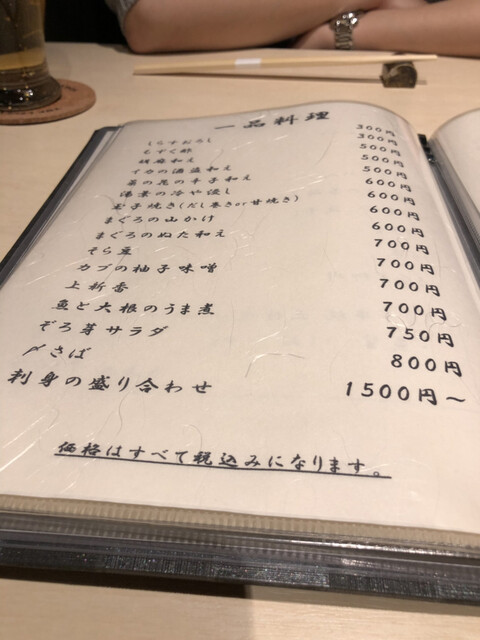 一品料理
しらすおろし 300円
もずく酢 300円
胡麻和え 500円
イカの酒盗和え 500円
菜の花の辛子和え 500円
湯葉の冷や浸し 600円
玉子焼き(だし巻きor甘焼き) 600円
まぐろの山かけ 600円
まぐろのぬた和え 600円
そら豆 700円
カブの柚子味噌 700円
上新香 700円
魚と大根のうま煮 700円
ぞろ芽サラダ 750円
〆さば 800円
刺身の盛り合わせ 1500円～
価格はすべて税込みになります。